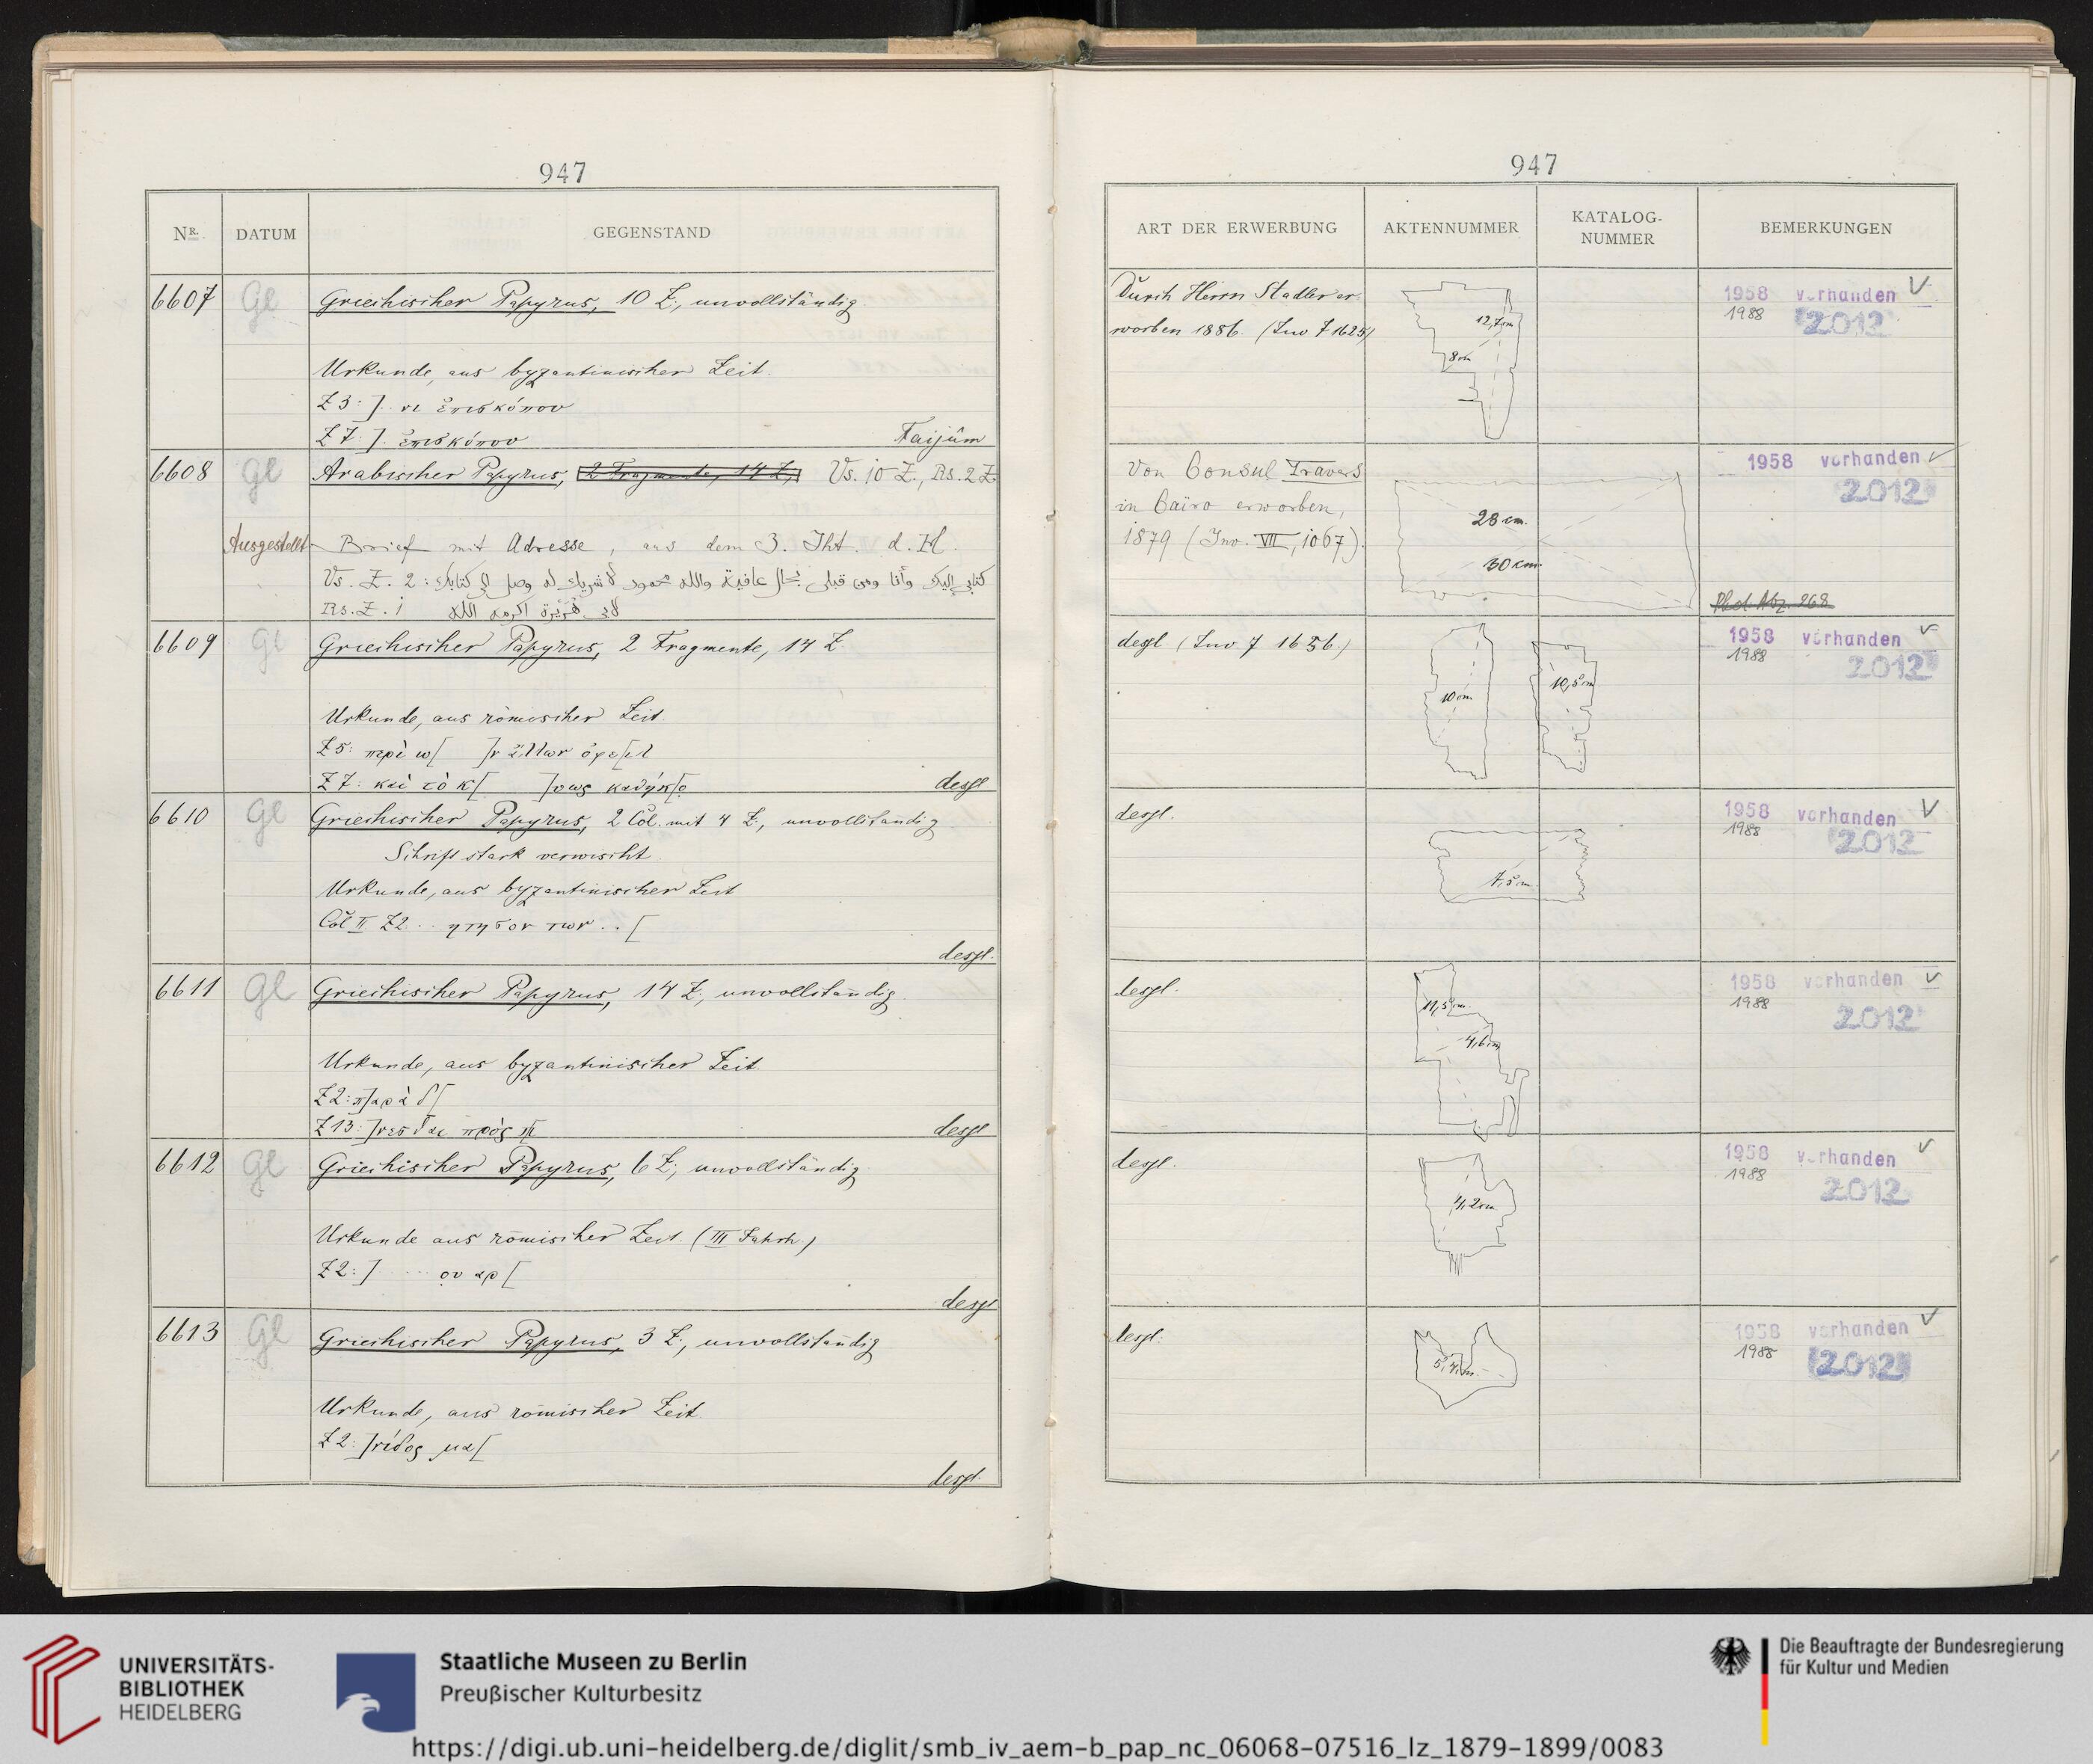 947
Nr. DATUM GEGENSTAND
6607 Gl Griechischer Papyrus, 10 Z., unvollständig
Urkunde, aus byzantinischer Zeit.
Z 3: ]. νι ἐπισκόπου
Z 7: ]. ἐπισκόπου Faijûm
6608 Gl Arabischer Papyrus, 2 Fragmente, 14 Z., Vs. 10 Z., Rs. 2 Z.
Ausgestellt Brief mit Adresse, aus dem 3. Jht. d. H.
Vs. Z. 2: كتابي إليك وأنا ومن قبلي بحال عافية والله محمود لا شريك له وصل إلي كتابك
Rs. Z. 1 لابي هريرة اكرمه الله
6609 Gl Griechischer Papyrus, 2 Fragmente, 14 Z
Urkunde, aus römischer Zeit.
Z 5: περὶ ω[ ]ν ἄλλων ὀφε[ιλ
Z 7: καὶ τὸ κ[ desgl
6610 Gl Griechischer Papyrus, 2 Col. mit 4 Z., unvollständig
Schrift stark verwischt.
Urkunde, aus byzantinischer Zeit
Col II Z2 . . ητησον των . . [
desgl.
6611 Gl Griechischer Papyrus, 14 Z., unvollständig.
Urkunde, aus byzantinischer Zeit.
Z2: π]αρὰ δ[
Z 13: ]νεσθαι πρὸς desgl
6612 Gl Griechischer Papyrus, 6 Z., unvollständig.
Urkunde aus römischer Zeit. (III Jahrh.)
Z2: ] .... ου αρ [
desgl
6613 Gl Griechischer Papyrus, 3 Z., unvollständig
Urkunde, aus römischer Zeit.
Z 2: ]νίδος μα[
desgl.
947
ART DER ERWERBUNG AKTENNUMMER KATALOG-NUMMER BEMERKUNGEN
Durch Herrn Stadler er-
worben 1886. (Inv 7 1625)
12,7cm
8cm
1958 vorhanden
1988 2012
Von Consul Travers
in Cairo erworben,
1879 (Inv. VII, 1067).
28 cm.
30 cm.
1958 vorhanden
2012
Phot. Abz. 268
desgl (Inv 7 1656.)
10 cm
10,5cm
1958 vorhanden
1988 2012
desgl.
7,5cm
1958 vorhanden
1988 2012
desgl.
11,5cm
4,6cm
1958 vorhanden
1988 2012
desgl.
4,2cm
1958 vorhanden
1988 2012
desgl.
5,4cm.
1958 vorhanden
1988 2012
UNIVERSITÄTS-
BIBLIOTHEK
HEIDELBERG
Staatliche Museen zu Berlin
Preußischer Kulturbesitz
Die Beauftragte der Bundesregierung
für Kultur und Medien
https://digi.ub.uni-heidelberg.de/diglit/smb_iv_aem-b_pap_nc_06068-07516_lz_1879-1899/0083